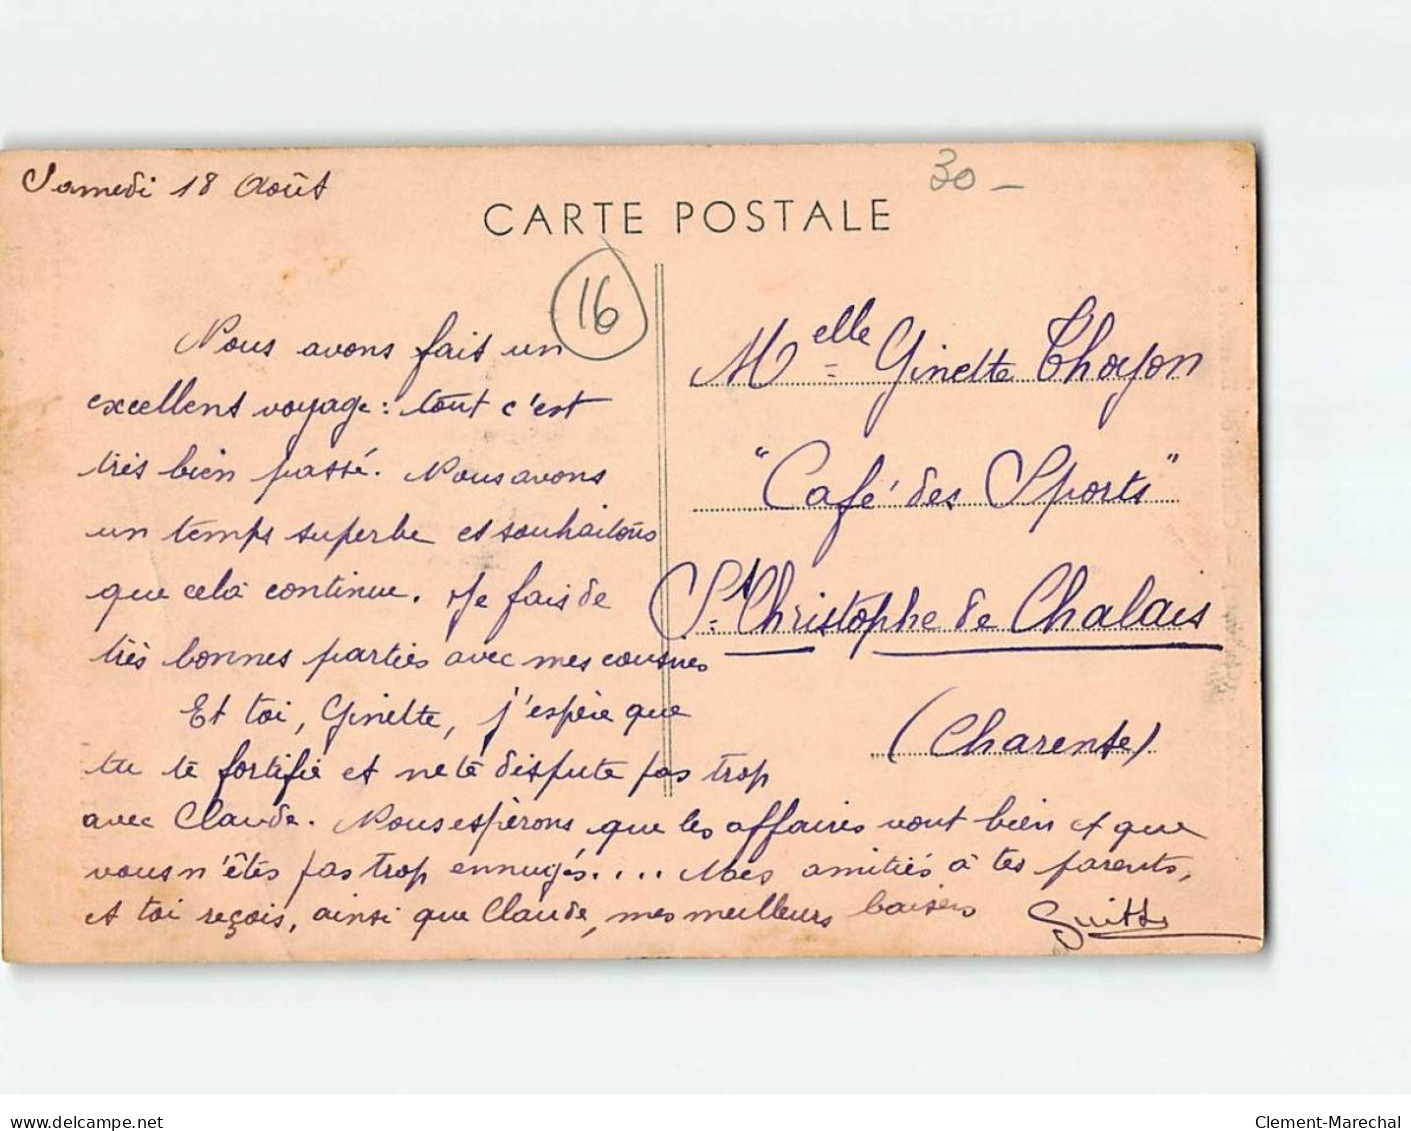 Samedi 18 Août
30 –
CARTE POSTALE
16
Nous avons fait un
excellent voyage : tout c'est
très bien passé. Nous avons
un temps superbe et souhaitons
que celà continue. Je fais de
très bonnes parties avec mes cousines
Et toi, Ginette, j'espère que
tu te fortifie et ne te dispute pas trop
avec Claude. Nous espérons que les affaires vont bien et que
vous n'êtes pas trop ennuyés.... Mes amitiés à tes parents,
et toi reçois, ainsi que Claude, mes meilleurs baisers
Melle Ginette Thoyon
"Café des Sports"
St Christophe de Chalais
(Charente)
delcampe.net
Clement-Marechal